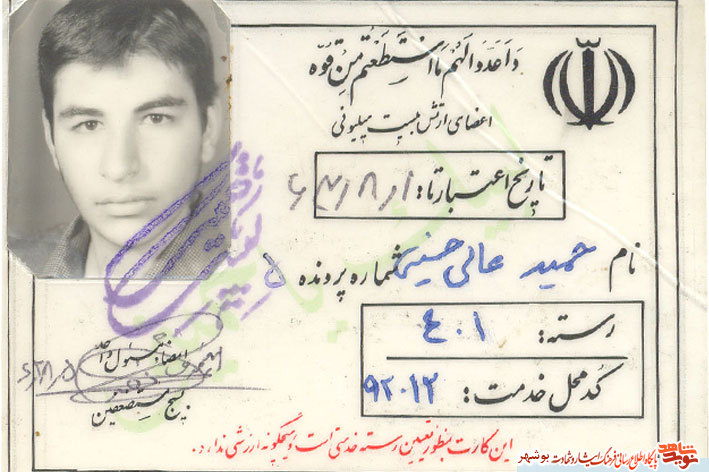 وَ أَعِدُّوا لَهُمْ مَا اسْتَطَعْتُمْ مِنْ قُوَّه
اعضای ارتش بیست میلیونی
تاریخ اعتبار تا: ۶۴/۸/۱
نام حمید عالی حسینی شماره پرونده ۵
رسته: ۴۰۱
کُد محل خدمت: ۹۲۰۱۲
امضاء مسئول واحد
بسیج مستضعفین
این کارت بمنظور تعیین رسته خدمتی است و هیچگونه ارزشی ندارد.
نوید شاهد
پایگاه اطلاع رسانی فرهنگ ایثار و شهادت بوشهر